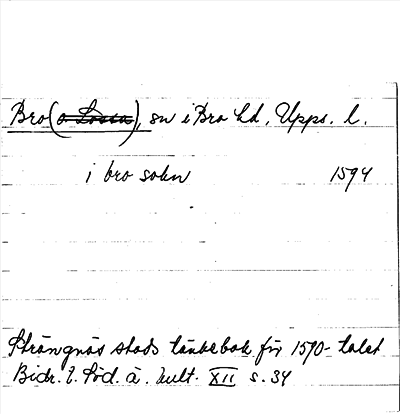 Bro (o. Lossa), sn i Bro hd, Upps. l.
i bro sokn 1594
Strängnäs stads tänkebok för 1590-talet
Bidr. t. Söd. ä. kult. XII s. 34